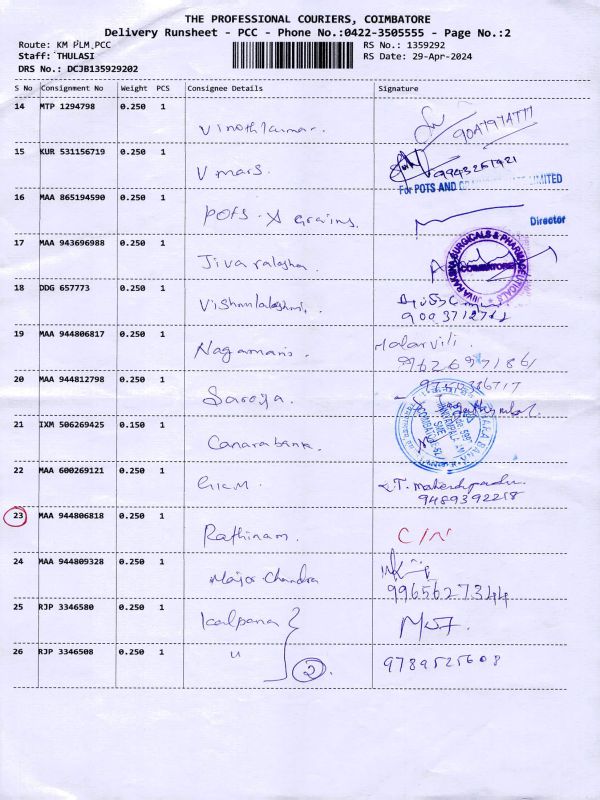 THE PROFESSIONAL COURIERS, COIMBATORE
Delivery Runsheet - PCC - Phone No.:0422-3505555 - Page No.:2
Route: KM PLM,PCC
RS No.: 1359292
Staff: THULASI
RS Date: 29-Apr-2024
DRS No.: DCJB135929202
S No Consignment No Weight PCS Consignee Details Signature
14 MTP 1294798 0.250 1
Vinothkumar. 9047974777
15 KUR 531156719 0.250 1
V mars. 9943267921
For POTS AND LIMITED
16 MAA 865194590 0.250 1
POTS & Grains.
Director
17 MAA 943696988 0.250 1
JIVA RAKSHA SURGICALS & PHARMACEUTICALS
COIMBATORE
Jivaraksha.
18 DDG 657773 0.250 1
Vishnulakshmi. 9003712712
19 MAA 944806817 0.250 1
Malarvili.
Nagamani. 9626977861
20 MAA 944812798 0.250 1
Saroja.
21 IXM 506269425 0.150 1
Canarabank.
22 MAA 600269121 0.250 1
T. Maheshpandu.
9489392218
23 MAA 944806818 0.250 1
Rathinam. C/N
24 MAA 944809328 0.250 1
Major Chandra
9965627344
25 RJP 3346580 0.250 1
Kalpana
26 RJP 3346508 0.250 1
" 2 9789525608